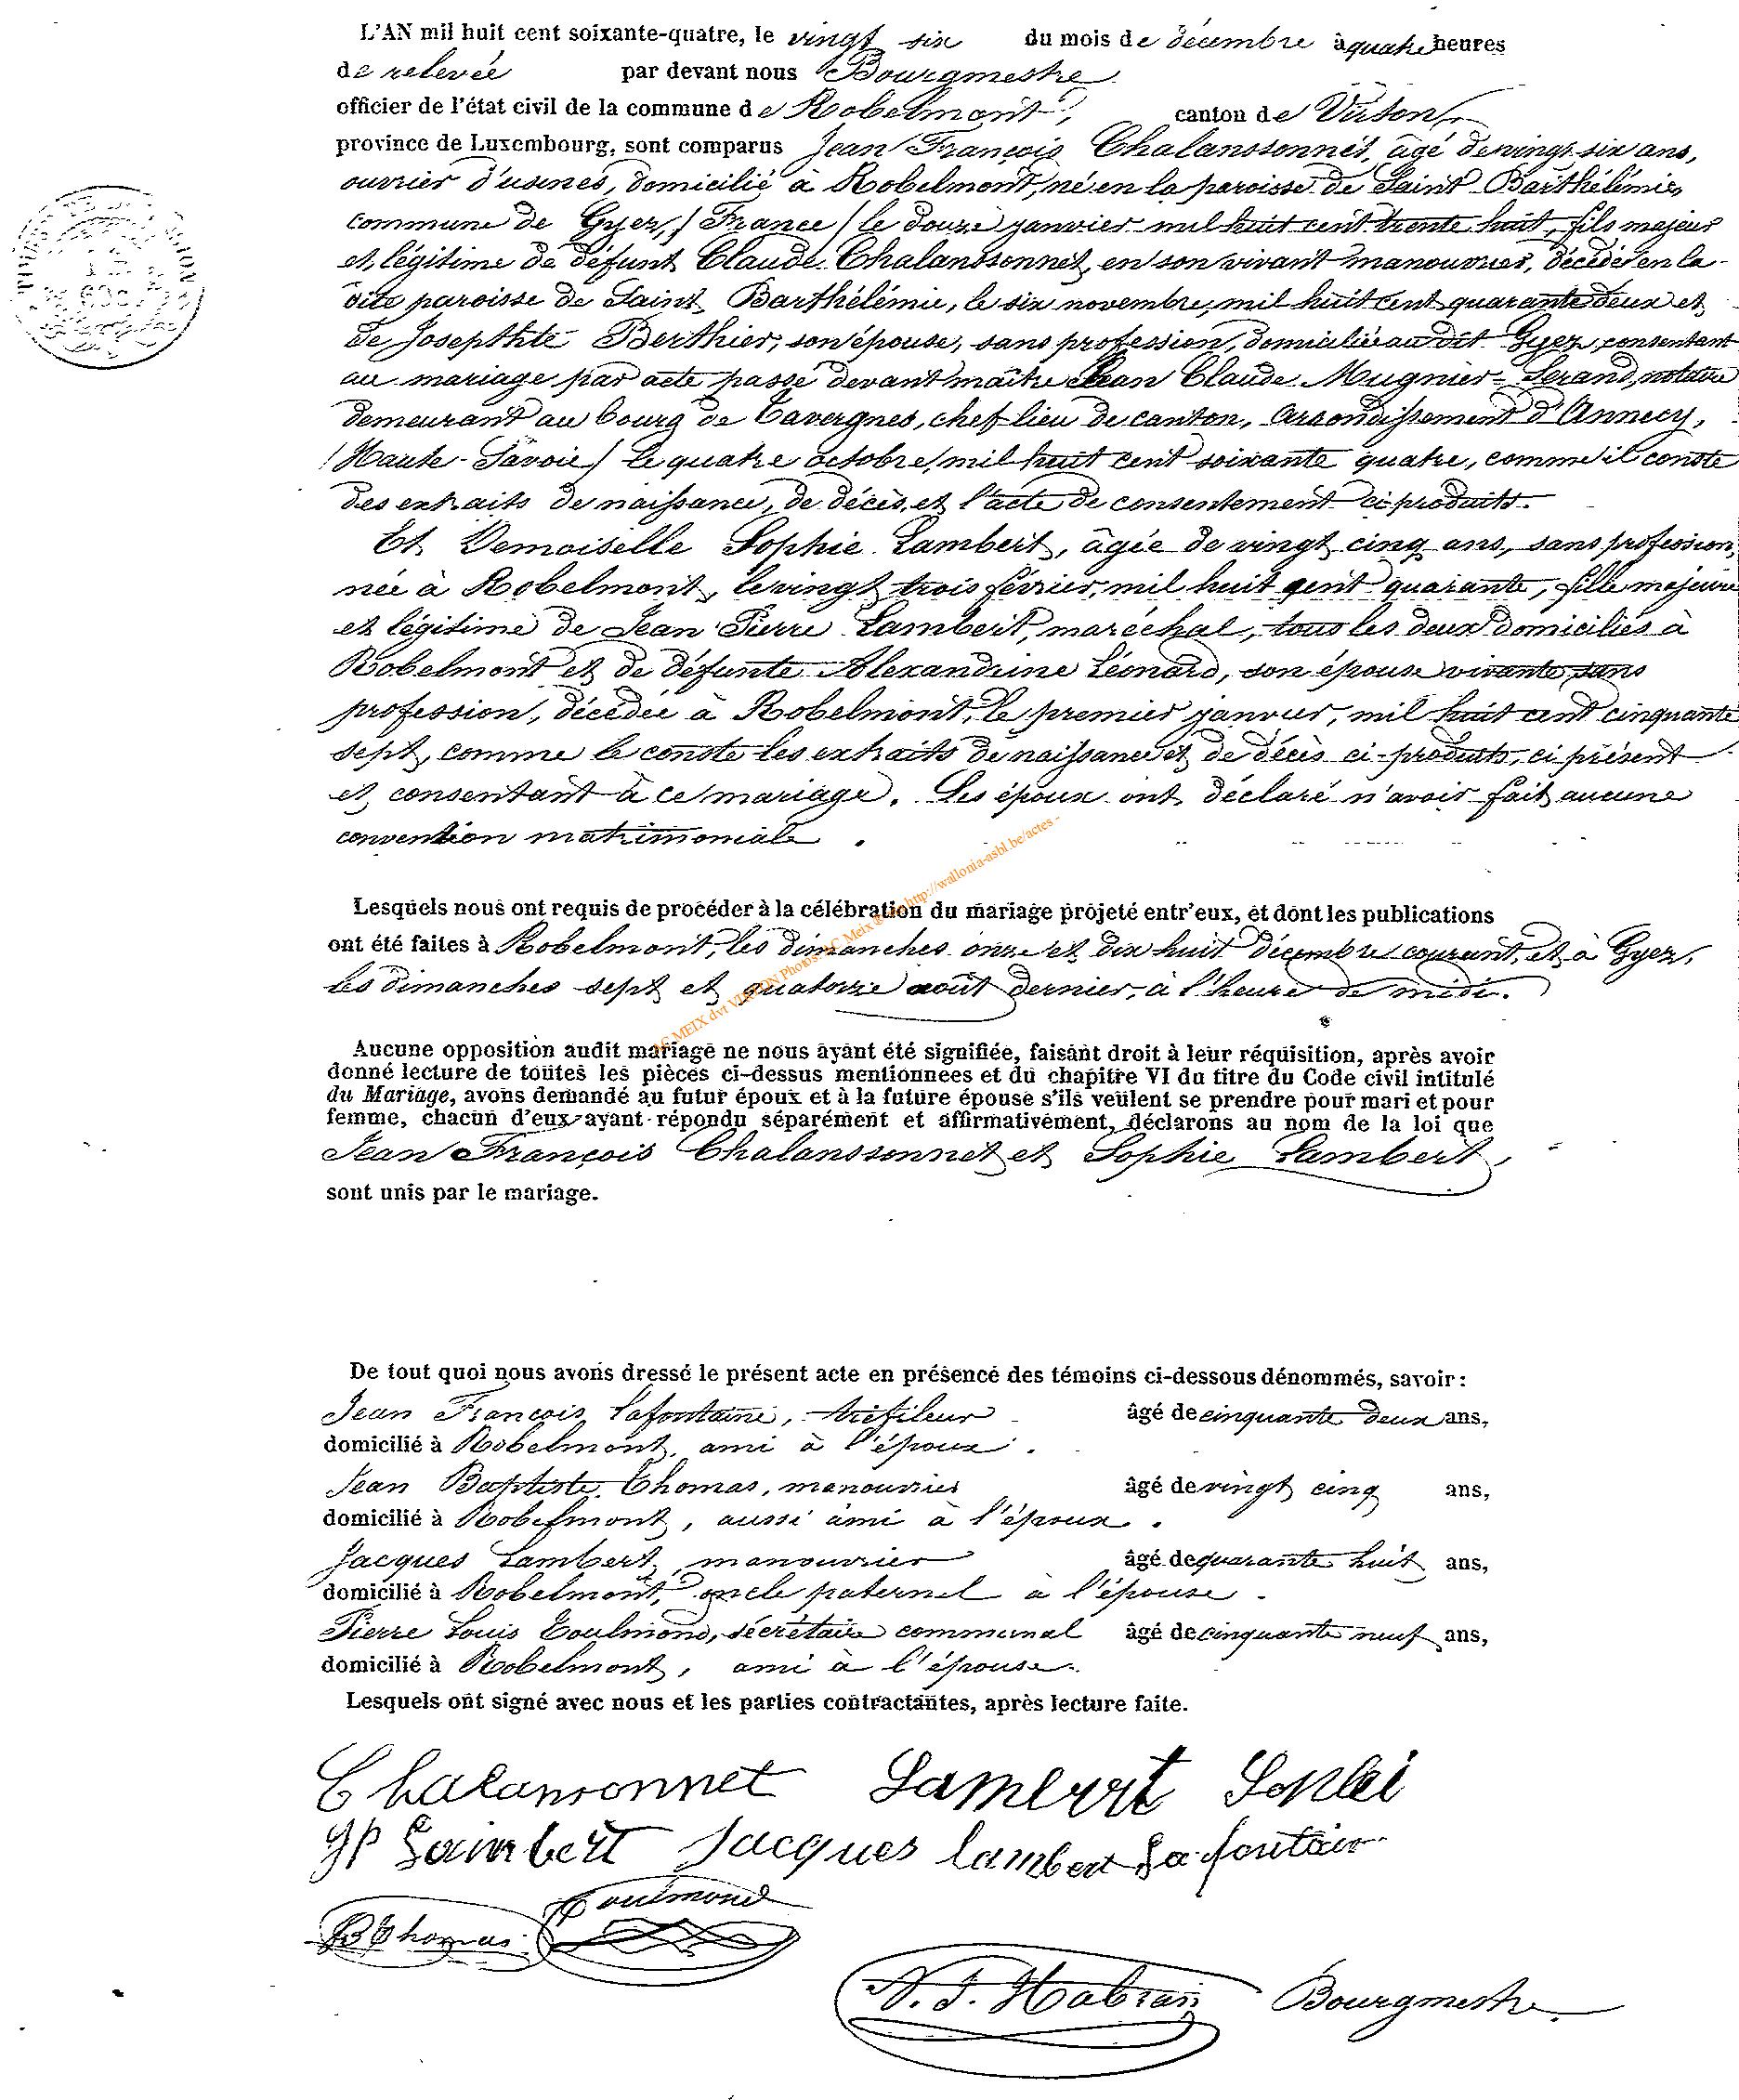 L'AN mil huit cent soixante-quatre, le vingt six du mois de décembre à quatre heures
de relevée par devant nous Bourgmestre
officier de l'état civil de la commune de Robelmont, canton de Virton,
province de Luxembourg, sont comparus Jean François Chalanssonnet, âgé de vingt six ans,
ouvrier d'usines, domicilié à Robelmont, né en la paroisse de Saint Barthélémie,
commune de Gyez, / France / le douze janvier mil huit cent trente huit, fils majeur
et légitime de défunt Claude Chalanssonnet, en son vivant manouvrier, décédé en la
dite paroisse de Saint Barthélémie, le six novembre, mil huit cent quarante deux et
de Josephte Berthier, son épouse, sans profession, domiciliée au dit Gyez, consentant
au mariage par acte passé devant maître Jean Claude Mugnier-Serand, notaire
demeurant au bourg de Favergnes, chef lieu de canton, arrondissement d'Annecy,
/ Haute-Savoie / le quatre octobre, mil huit cent soixante quatre, comme il conste
des extraits de naissance, de décès, et l'acte de consentement ci-produits.
Et Demoiselle Sophie Lambert, âgée de vingt cinq ans, sans profession,
née à Robelmont, le vingt trois février, mil huit cent quarante, fille majeure
et légitime de Jean Pierre Lambert, maréchal, tous les deux domiciliés à
Robelmont et de défunte Alexandrine Léonard, son épouse vivante sans
profession, décédée à Robelmont, le premier janvier, mil huit cent cinquante
sept, comme le conste les extraits de naissance et de décès ci-produits, ci présent
et consentant à ce mariage. Les époux ont déclaré n'avoir fait aucune
convention matrimoniale.
Lesquels nous ont requis de procéder à la célébration du mariage projeté entr'eux, et dont les publications
ont été faites à Robelmont, les dimanches onze et dix huit décembre courant, et à Gyez,
les dimanches sept et quatorze août dernier, à l'heure de midi.
AC MEIX dvt VIRTON Photos AC Meix http://wallonia-asbl.be/actes -
Aucune opposition audit mariage ne nous ayant été signifiée, faisant droit à leur réquisition, après avoir
donné lecture de toutes les pièces ci-dessus mentionnees et du chapitre VI du titre du Code civil intitulé
du Mariage, avons demandé au futur époux et à la future épouse s'ils veulent se prendre pour mari et pour
femme, chacun d'eux ayant répondu séparément et affirmativement, déclarons au nom de la loi que
Jean François Chalanssonnet et Sophie Lambert,
sont unis par le mariage.
De tout quoi nous avons dressé le présent acte en présence des témoins ci-dessous dénommés, savoir :
Jean François Lafontaine, tréfileur âgé de cinquante deux ans,
domicilié à Robelmont, ami à l'époux.
Jean Baptiste Thomas, manouvrier âgé de vingt cinq ans,
domicilié à Robelmont, aussi ami à l'époux.
Jacques Lambert, manouvrier âgé de quarante huit ans,
domicilié à Robelmont, oncle paternel à l'épouse.
Pierre Louis Toulmond, secrétaire communal âgé de cinquante neuf ans,
domicilié à Robelmont, ami à l'épouse.
Lesquels ont signé avec nous et les parties contractantes, après lecture faite.
Chalansonnet Lambert Sophi
JP Lambert Jacques lambert Lafontain
Toulmond
JB Thomas
N. J. Habran Bourgmestre